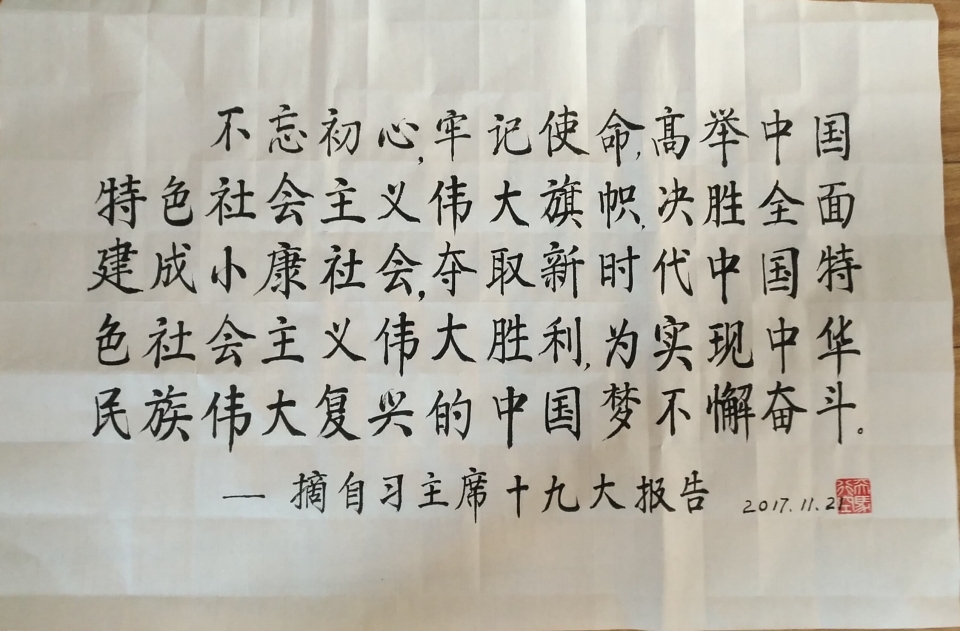 不忘初心,牢记使命,高举中国
特色社会主义伟大旗帜,决胜全面
建成小康社会,夺取新时代中国特
色社会主义伟大胜利,为实现中华
民族伟大复兴的中国梦不懈奋斗。
— 摘自习主席十九大报告 2017.11.2